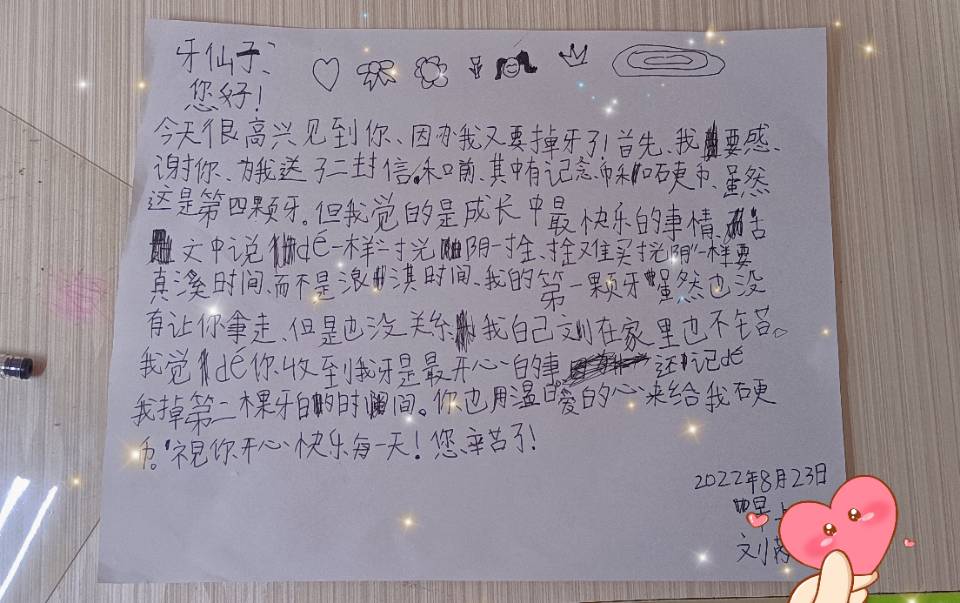 牙仙子：
您好！
今天很高兴见到你、因为我又要掉牙了！首先、我要感、
谢你、为我送了二封信。和前、其中有记念币和硬币、虽然
这是第四颗牙。但我觉的是成长中最快乐的事情、
文中说dé一样"寸光阴一拴、拴难买光阴"一样要
真溪时间、而不是浪淇时间、我的第一颗牙虽然也没
有让你拿走、但是也没关系我自己刘在家里也不错。
我觉dé你收到我牙是最开心的事还记dé
我掉第二棵牙的时间。你也用温暖的心来给我硬
币。祝你开心快乐每一天！您辛苦了！
2022年8月23日
早上
刘